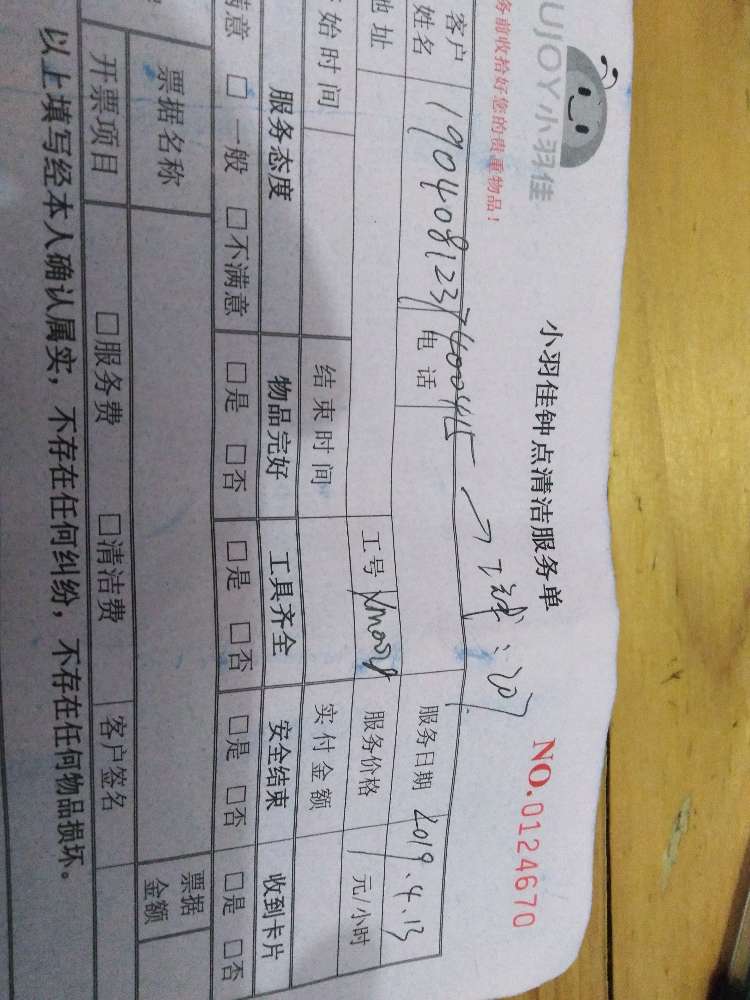 UJOY小羽佳
小羽佳钟点清洁服务单
务前收拾好您的贵重物品！
NO.0124670
客户姓名 1904081237400415 电话 服务日期 2019.4.13
地址 工号 服务价格 元/小时
始时间 结束时间 实付金额
服务态度 物品完好 工具齐全 安全结束 收到卡片
满意 □ 一般 □不满意 □是 □否 □是 □否 □是 □否 □是 □否
票据名称 票据金额
开票项目 □服务费 □清洁费 客户签名
以上填写经本人确认属实，不存在任何纠纷，不存在任何物品损坏。